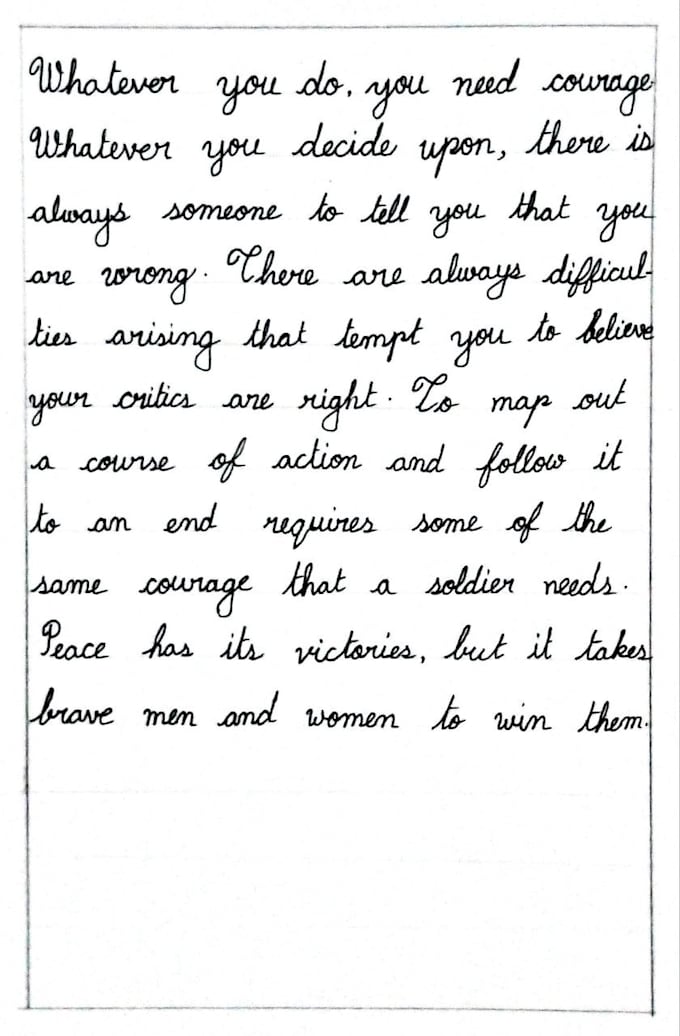 Whatever you do, you need courage.
Whatever you decide upon, there is
always someone to tell you that you
are wrong. There are always difficul-
ties arising that tempt you to believe
your critics are right. To map out
a course of action and follow it
to an end requires some of the
same courage that a soldier needs.
Peace has its victories, but it takes
brave men and women to win them.